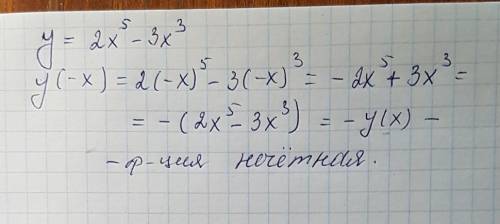 y = 2x⁵ - 3x³
y(-x) = 2(-x)⁵ - 3(-x)³ = - 2x⁵ + 3x³ =
= - (2x⁵ - 3x³) = - y(x) -
- ф-ция нечётная.